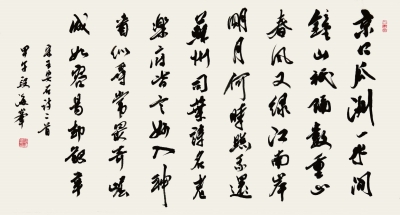 京口瓜洲一水间
钟山祇隔数重山
春风又绿江南岸
明月何时照我还
苏州司业诗名老
乐府皆言妙入神
看似寻常最奇崛
成如容易却艰辛
录王安石诗二首
甲午